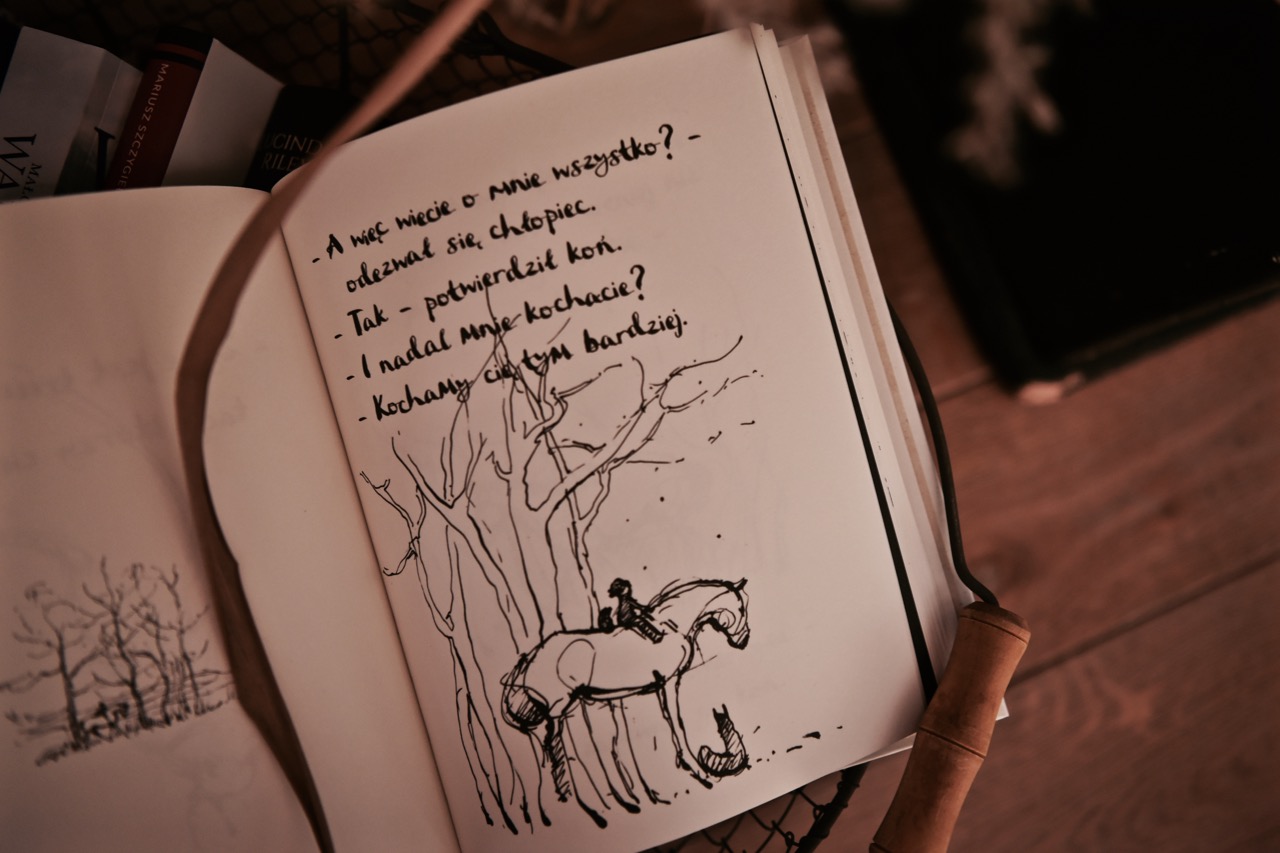 MARIUSZ SZCZYGIE
WA
RILE
- A więc wiecie o mnie wszystko? -
odezwał się chłopiec.
- Tak - potwierdził koń.
- I nadal mnie kochacie?
- Kochamy cię tym bardziej.